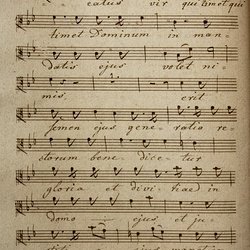 catus vir qui timet qui
timet Dominum in man-
datis ejus volet ni-
mis, erit
semen ejus gene-ratio re-
ctorum bene-dice-tur
gloria et divi-tiae in
domo ejus et ju-